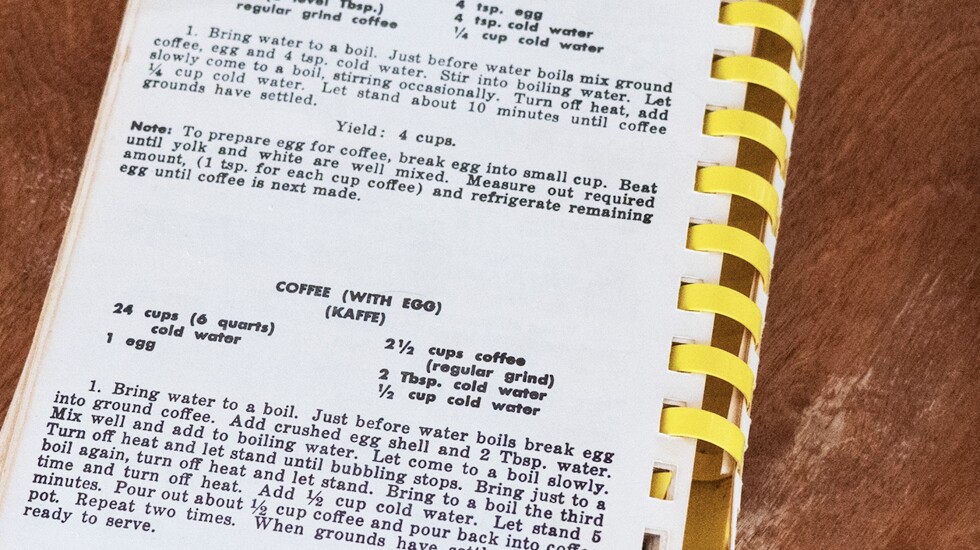 level Tbsp.)
regular grind coffee
4 tsp. egg
4 tsp. cold water
¼ cup cold water
1. Bring water to a boil. Just before water boils mix ground
coffee, egg and 4 tsp. cold water. Stir into boiling water. Let
slowly come to a boil, stirring occasionally. Turn off heat, add
¼ cup cold water. Let stand about 10 minutes until coffee
grounds have settled.
Yield: 4 cups.
Note: To prepare egg for coffee, break egg into small cup. Beat
until yolk and white are well mixed. Measure out required
amount, (1 tsp. for each cup coffee) and refrigerate remaining
egg until coffee is next made.
COFFEE (WITH EGG)
(KAFFE)
24 cups (6 quarts)
cold water
1 egg
2½ cups coffee
(regular grind)
2 Tbsp. cold water
½ cup cold water
1. Bring water to a boil. Just before water boils break egg
into ground coffee. Add crushed egg shell and 2 Tbsp. water.
Mix well and add to boiling water. Let come to a boil slowly.
Turn off heat and let stand until bubbling stops. Bring just to a
boil again, turn off heat and let stand. Bring to a boil the third
time and turn off heat. Add ½ cup cold water. Let stand 5
minutes. Pour out about ½ cup coffee and pour back into
pot. Repeat two times. When grounds have
ready to serve.